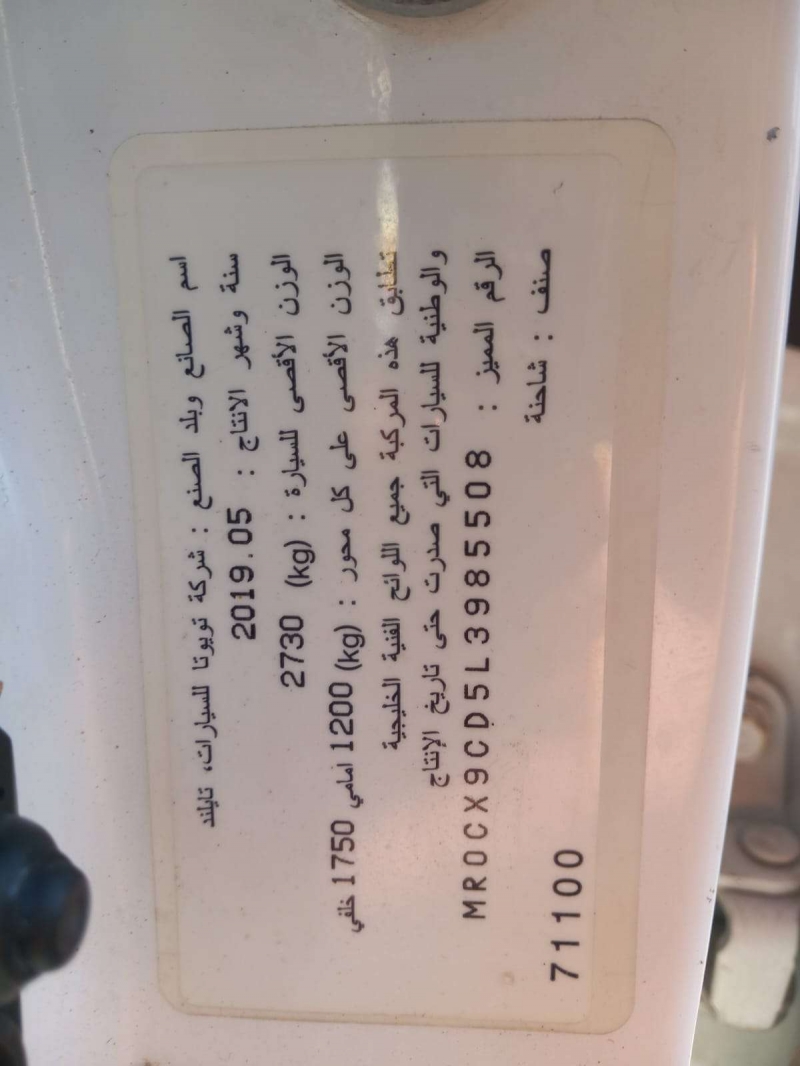 اسم الصانع وبلد الصنع : شركة تويوتا للسيارات، تايلند
سنة وشهر الانتاج : 2019.05
الوزن الأقصى للسيارة : (kg) 2730
الوزن الأقصى على كل محور : (kg) 1200 امامي 1750 خلفي
تطابق هذه المركبة جميع اللوائح الفنية الخليجية
والوطنية للسيارات التي صدرت حتى تاريخ الإنتاج
الرقم المميز : MR0CX9CD5L3985508
صنف : شاحنة
71100